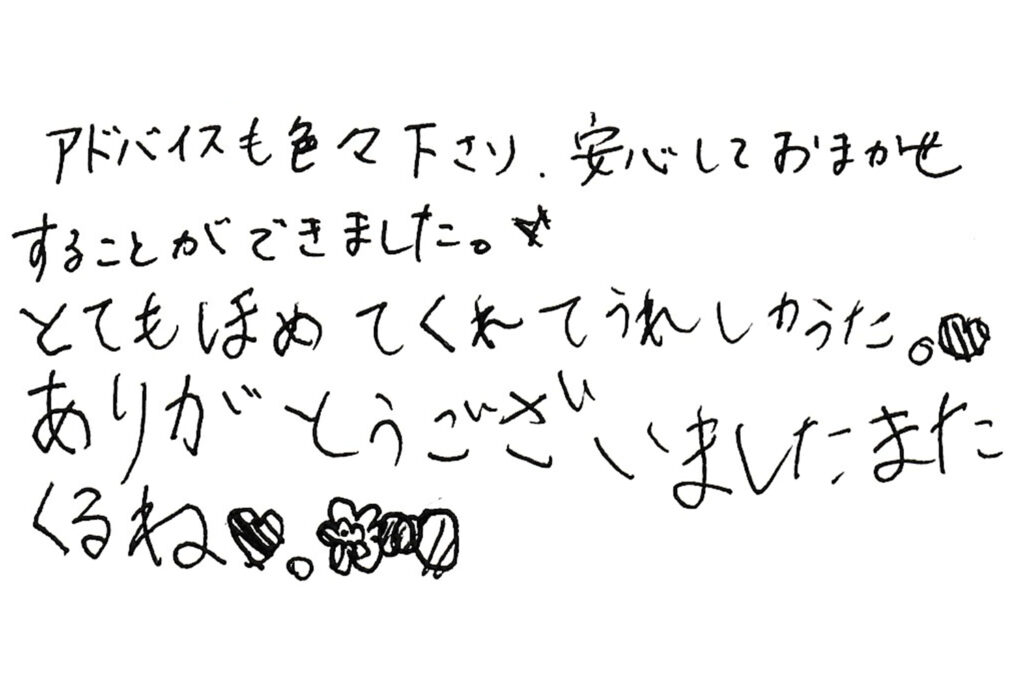 アドバイスも色々下さり、安心しておまかせ
することができました。☆
とてもほめてくれてうれしかうた。
ありがとうございましたまた
くるね♥。